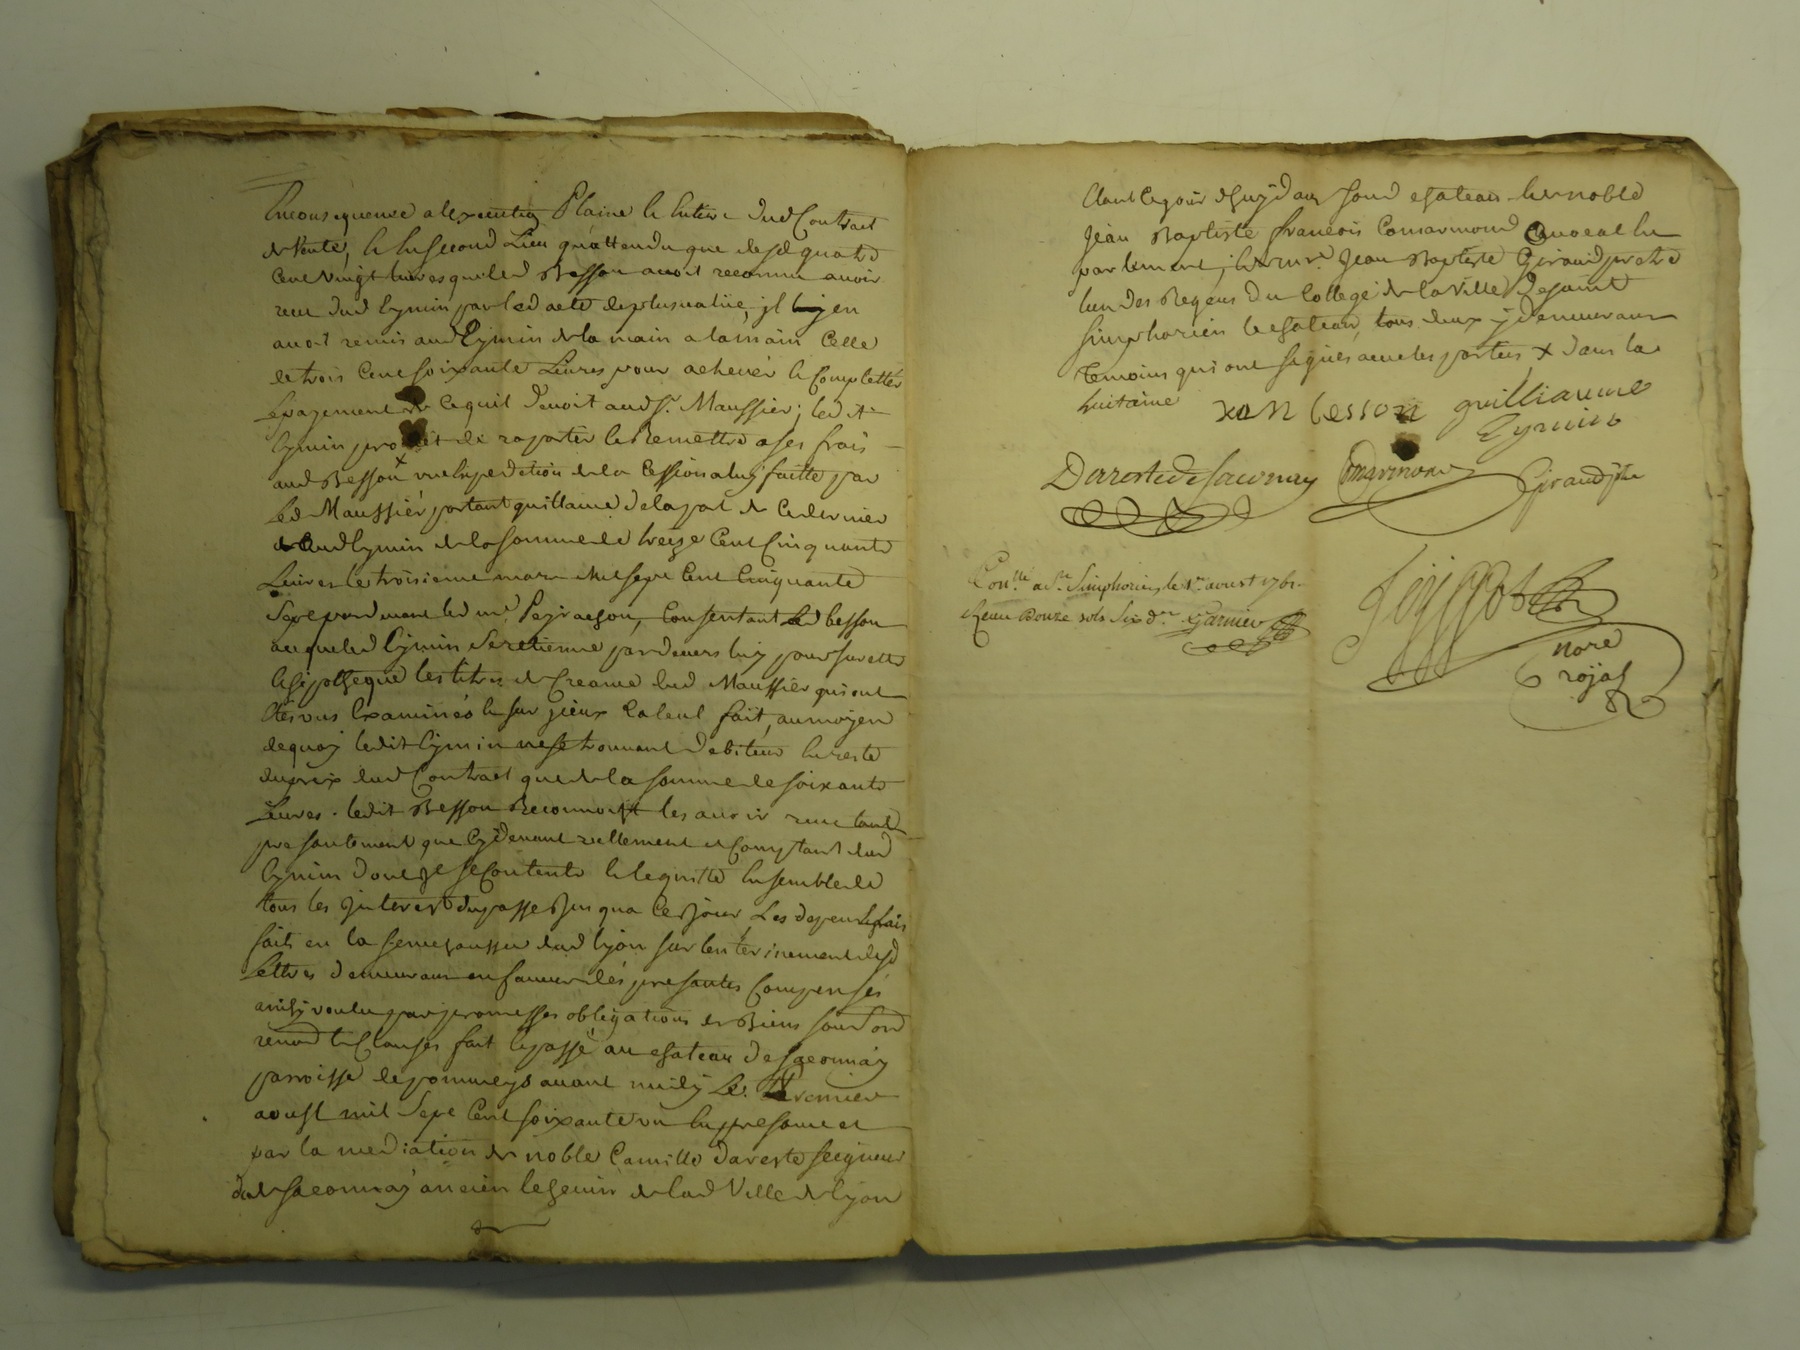 En consequence a lexecution Plaine et entiere dud Contract
de Vente, et en second Lieu qu'attendu que desd quatre
Cent vingt livres que led Besson avoit reconnu avoir
receu dud Eymin par led acte de plus value, jl luy en
avoit remis aud Eymin de la main a la main Celle
de trois Cent soixante Livres pour achever le Complettes
et payement de ce quil devoit aud Sr. Maussier; led
Eymin promet de raporter et Remettre a ses frais
aud Besson x une Expedition de la Cession a luy faitte par
led Maussier portant quittance de la part de ce dernier
aud Eymin de la somme de treize Cent Cinquante
Livres le troisieme mars mil sept Cent Cinquante
sept pardevant led me. Peyrachon, Consentant led besson
a ce que led Eymin se retienne pardevers luy pour sureté
et hypotheque les titres de Creance dud Maussier qui ont
étés vus Examinés et sur jceux Calcul fait, au moyen
de quoy ledit Eymin ne se trouvant debiteur en reste
du prix dud Contract que de la somme de soixante
Livres. ledit Besson Reconnoist les avoir receu tant
presentement que cydevant reellement et Comptant dud
Eymin dont jl se Contente et le quitte Ensemble de
tous les jnterest du passé Jusqua Ce Jour, Les depens et frais
faits en la senechaussée dud lyon sur lenterinement desd
Lettres demeurant en faveur des presantes Compensés
ainsy voulu par promesses obligations de Biens soum ond
renond et Clauses fait et passé au chateau de Saconnay
parroisse de pommeys avant midy Le Premier
aoust mil Sept Cent soixante un En presance et
par la mediation de noble Camille dareste seigneur
dud Saconnay ancien Echevin de lad Ville de lyon
étant Ce jour d'huy dans sond chateau et de noble
Jean Baptiste francois Comarmond avocat en
parlement, et de mre. Jean Baptiste Giraud pretre
lun des Regens du College de la Ville de saint
simphorien le chateau, tous deux y demeurant
temoins qui ont signés avec les parties x dans la
huitaine
xan besson guilliaume
Eymin
Dareste de Saconay Comarmond Giraud ptre
Conllé a St. Simphorien le 1er aoust 1761.
Receu Douze sols Six drs. Garnier
nore
rojal